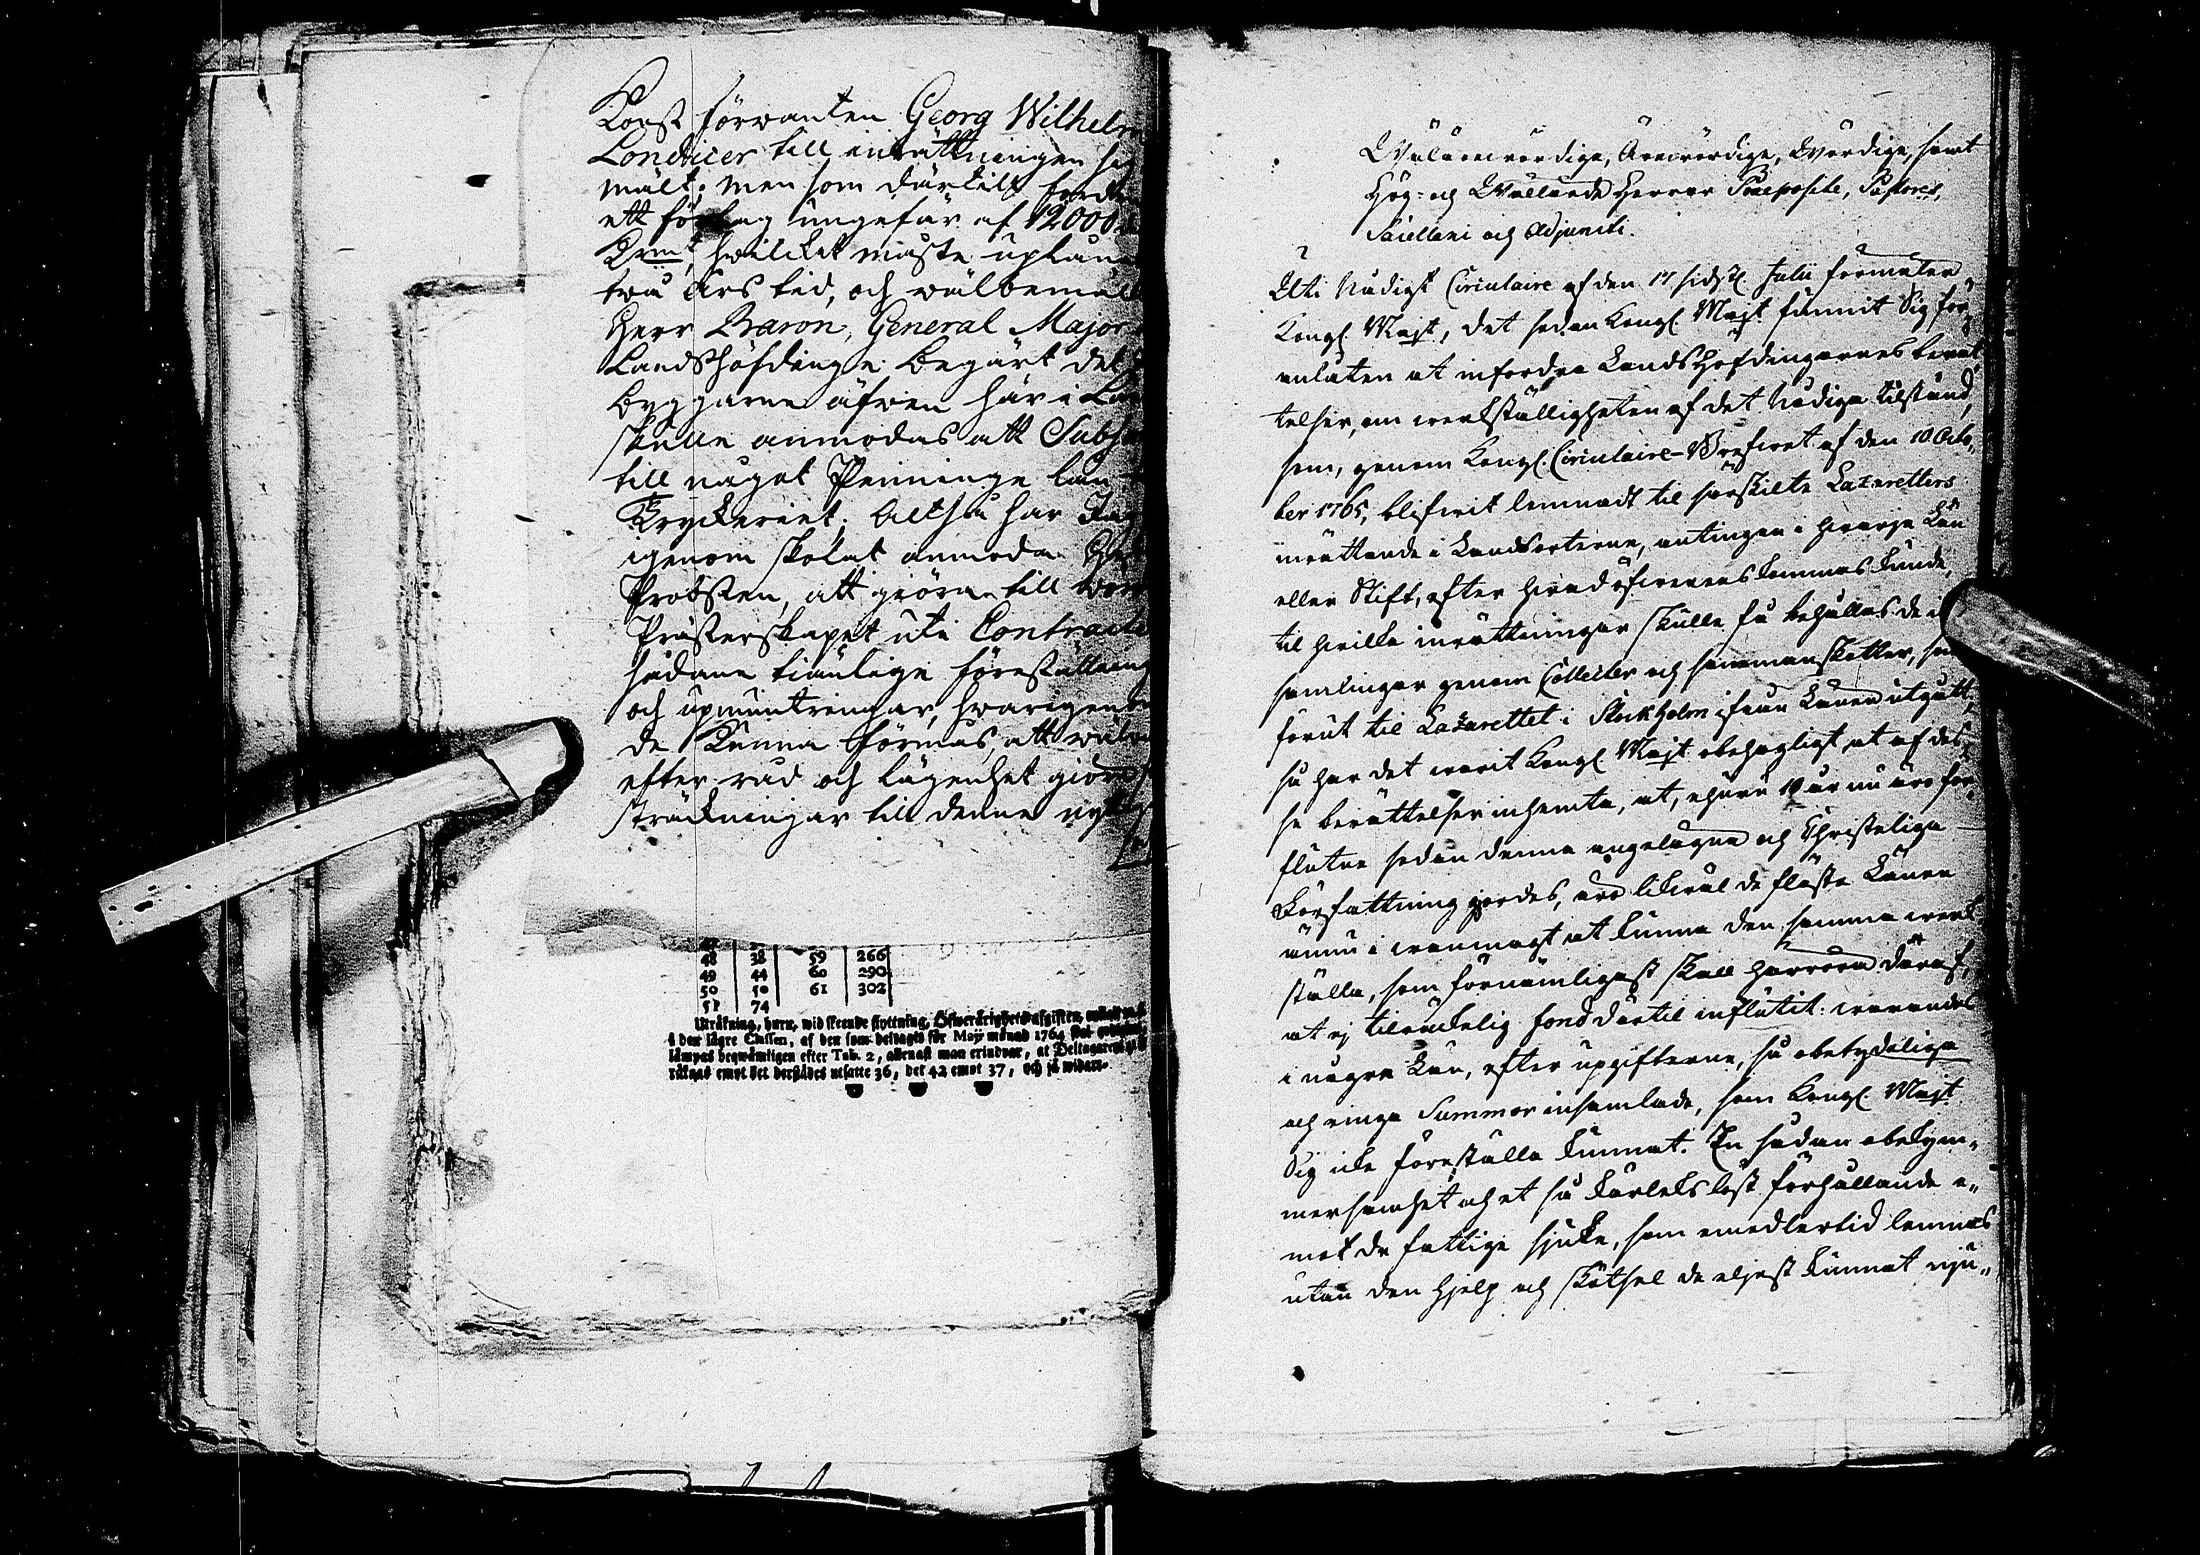 Konst förwanten Georg Wilhelm
Londicer till inrättningen sig
mält; men som därtill fordr
ett förlag ungefär af 12000
Krm:t, hwilcket måste uplåna
twå års tid, och wälbemält
Herr Baron, General Major
Landshöfdinge begärt det
byggarne äfwen här i Lan
skulle anmodas att Subs
till något Penninge lån
Tryckeriet; Altså har Jag
igenom skolat anmoda He
Probsten, att giöra till
Prästerskapet uti Contract
sådane tiänlige föreställning
och upmuntringar, hwarigenom
de kunna förmås, att
efter råd och lägenhet giöra
sträckningar till denne nyt
48 38 59 266
49 44 60 290
50 50 61 302
51 74
Uträkning, huru, wid skeende flyttning, Öfwerårighets-afgiften,
i den lägre Classen, af den som deltagit för Maij månad 1764
lämpas beqwämligen efter Tab. 2, allenast man erindrar, at Deltagaren
räknas emot det derstädes utsatte 36, det 42 emot 37, och så widare.
Wäl ärewördige, Ärewördige, Wördige, samt
Hög- och Wällärde Herrar Præpositi, Pastores,
Sacellani och Adjuncti.
Uti Nådigt Circulaire af den 17 sidstl. Julii förmäler
Kongl. Majt, det sedan Kongl. Majt funnit Sig för-
anlåten at infordra Landshöfdingarnes berät-
telser, om werkställigheten af det Nådiga tilstånd,
som, genom Kongl. Circulaire-Brefwet af den 10 Octo-
ber 1765, blifwit lemnadt til särskilte Lazaretters
inrättande i Landsorterne, antingen i hwarje Län
eller Stift, efter hwad öfwerenskommas kunde,
til hwilka inrättningar skulle få behållas de
samlingar genom Collecter och sammanskotter, som
förut til Lazarettet i Stockholm ifrån Länen utgått,
så har det warit Kongl. Majt obehagligt, at af des-
se berättelser inhemta, at, ehuru 10 år nu äro för-
flutne sedan denna angelägna och Christeliga
Författning gjordes, äro likwäl de fläste Länen
ännu i wanmagt at kunna den samma werk-
ställa, som förnämligast skall härröra däraf,
at ej tilräckelig fond därtil influtit: warandes
i några Län, efter upgifterne, så obetydeliga
och ringa Summor insamlade, som Kongl. Majt
Sig icke föreställa kunnat. En sådan obekym-
mersamhet och et så kärlekslöst förhållande e-
mot de fattige sjuke, som emedlertid lemnas
utan den hjelp och skötsel de eljest kunnat nju-